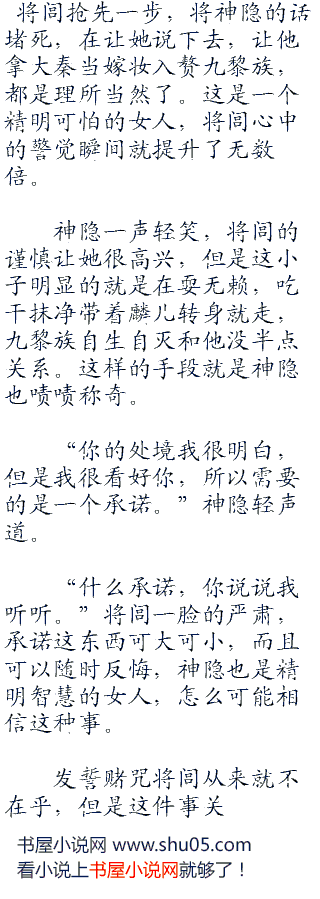 将闾抢先一步，将神隐的话
堵死，在让她说下去，让他
拿大秦当嫁妆入赘九黎族，
都是理所当然了。这是一个
精明可怕的女人，将闾心中
的警觉瞬间就提升了无数
倍。
神隐一声轻笑，将闾的
谨慎让她很高兴，但是这小
子明显的就是在耍无赖，吃
干抹净带着麟儿转身就走，
九黎族自生自灭和他没半点
关系。这样的手段就是神隐
也啧啧称奇。
“你的处境我很明白，
但是我很看好你，所以需要
的是一个承诺。”神隐轻声
道。
“什么承诺，你说说我
听听。”将闾一脸的严肃，
承诺这东西可大可小，而且
可以随时反悔，神隐也是精
明智慧的女人，怎么可能相
信这种事。
发誓赌咒将闾从来就不
在乎，但是这件事关
书屋小说网 www.shu05.com
看小说上书屋小说网就够了！